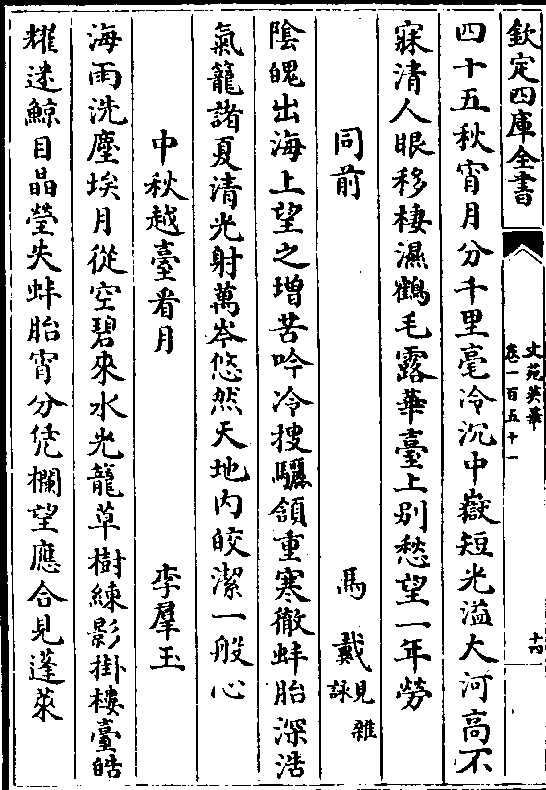 欽定四庫全書
文苑英華
卷一百五十一
十四
四十五秋宵月分千里毫冷沉中嶽短光溢大河高不
寐清人眼移棲濕鶴毛露華臺上别愁望一年勞
同前 馬戴 見雜詠
陰魄出海上望之增苦吟冷搜驪頷重寒徹蚌胎深浩
氣籠諸夏清光射萬岑悠然天地内皎潔一般心
中秋越臺看月 李羣玉
海雨洗塵埃月從空碧來水光籠草樹練影掛樓臺皓
耀迷鯨目晶瑩失蚌胎宵分凭欄望應合見蓬萊